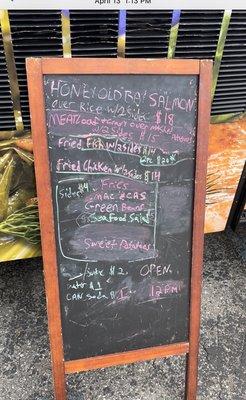 April 13 1:13 PM
HONEY OLD BAY SALMON
over Rice w/2 side $18
MEATLoaf
w/2 Sides $15
Fried Fish w/2 sides $14
Fried Chicken w/2 sides $14
Sides $4 Fries
MAC & CAS
Green Beans
SeaFood Salad
Sweet Potatoes
$2. OPEN
water $1
CAN soda $1 12PM